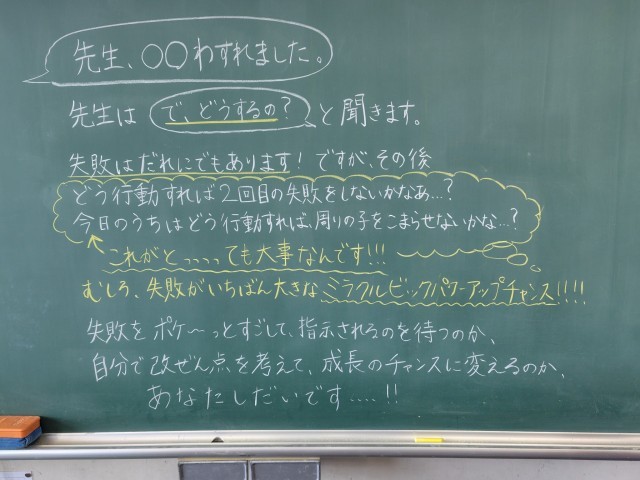 先生、〇〇わすれました。
先生は で、どうするの? と聞きます。
失敗はだれにでもあります! ですが、その後
どう行動すれば2回目の失敗をしないかなあ…?
今日のうちはどう行動すれば、周りの子をこまらせないかな…?
これがとっっっっても大事なんです!!!
むしろ、失敗がいちばん大きなミラクルビックパワーアップチャンス!!!!
失敗をポケ〜っとすごして、指示されるのを待つのか、
自分で改ぜん点を考えて、成長のチャンスに変えるのか、
あなたしだいです....!!